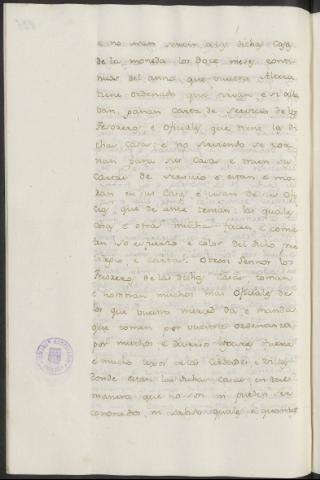 e no usan servir a las dichas casas
de la moneda los doce meses conti
nuos del anno, que vuestra Alteza
tiene ordenado que sirvan, e si alla
van, sacan carta de servicio de los
Tesoreros e oficiales que tiene la di
cha casa e no sirviendo se tor
nan para sus casas e traen sus
cartas de servicio e estan e mo
ran en sus casas e usan de sus ofi
cios que de antes tenian: las quales
cosas e otras muchas facen, e come
ten so esfuerzo e color del dicho pre
vilegio e cartas. Otrosi Sennor los
Tesoreros de las dichas casas toman
e nombran muchos mas oficiales de
los que vuestra merced da e manda
que tomen por vuestras ordenanzas
por muchos e diversos logares fuera
e mucho lexos de las cibdades e villas
donde estan las dichas casas en tal
manera que no son ni pueden ser
conoscidos, ni sabido quales e quantos